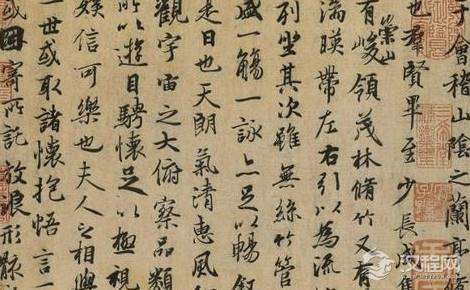 于會稽山陰之蘭亭脩
也羣賢畢至少長咸集
崇山
有峻領茂林脩竹又有
湍暎帶左右引以為流
列坐其次雖無絲竹管
盛一觴一詠亦足以暢敘
是日也天朗氣清惠風
觀宇宙之大俯察品類
所以遊目騁懷足以極視
娛信可樂也夫人之相與
一世或取諸懷抱悟言一
或因寄所託放浪形骸
汉程网